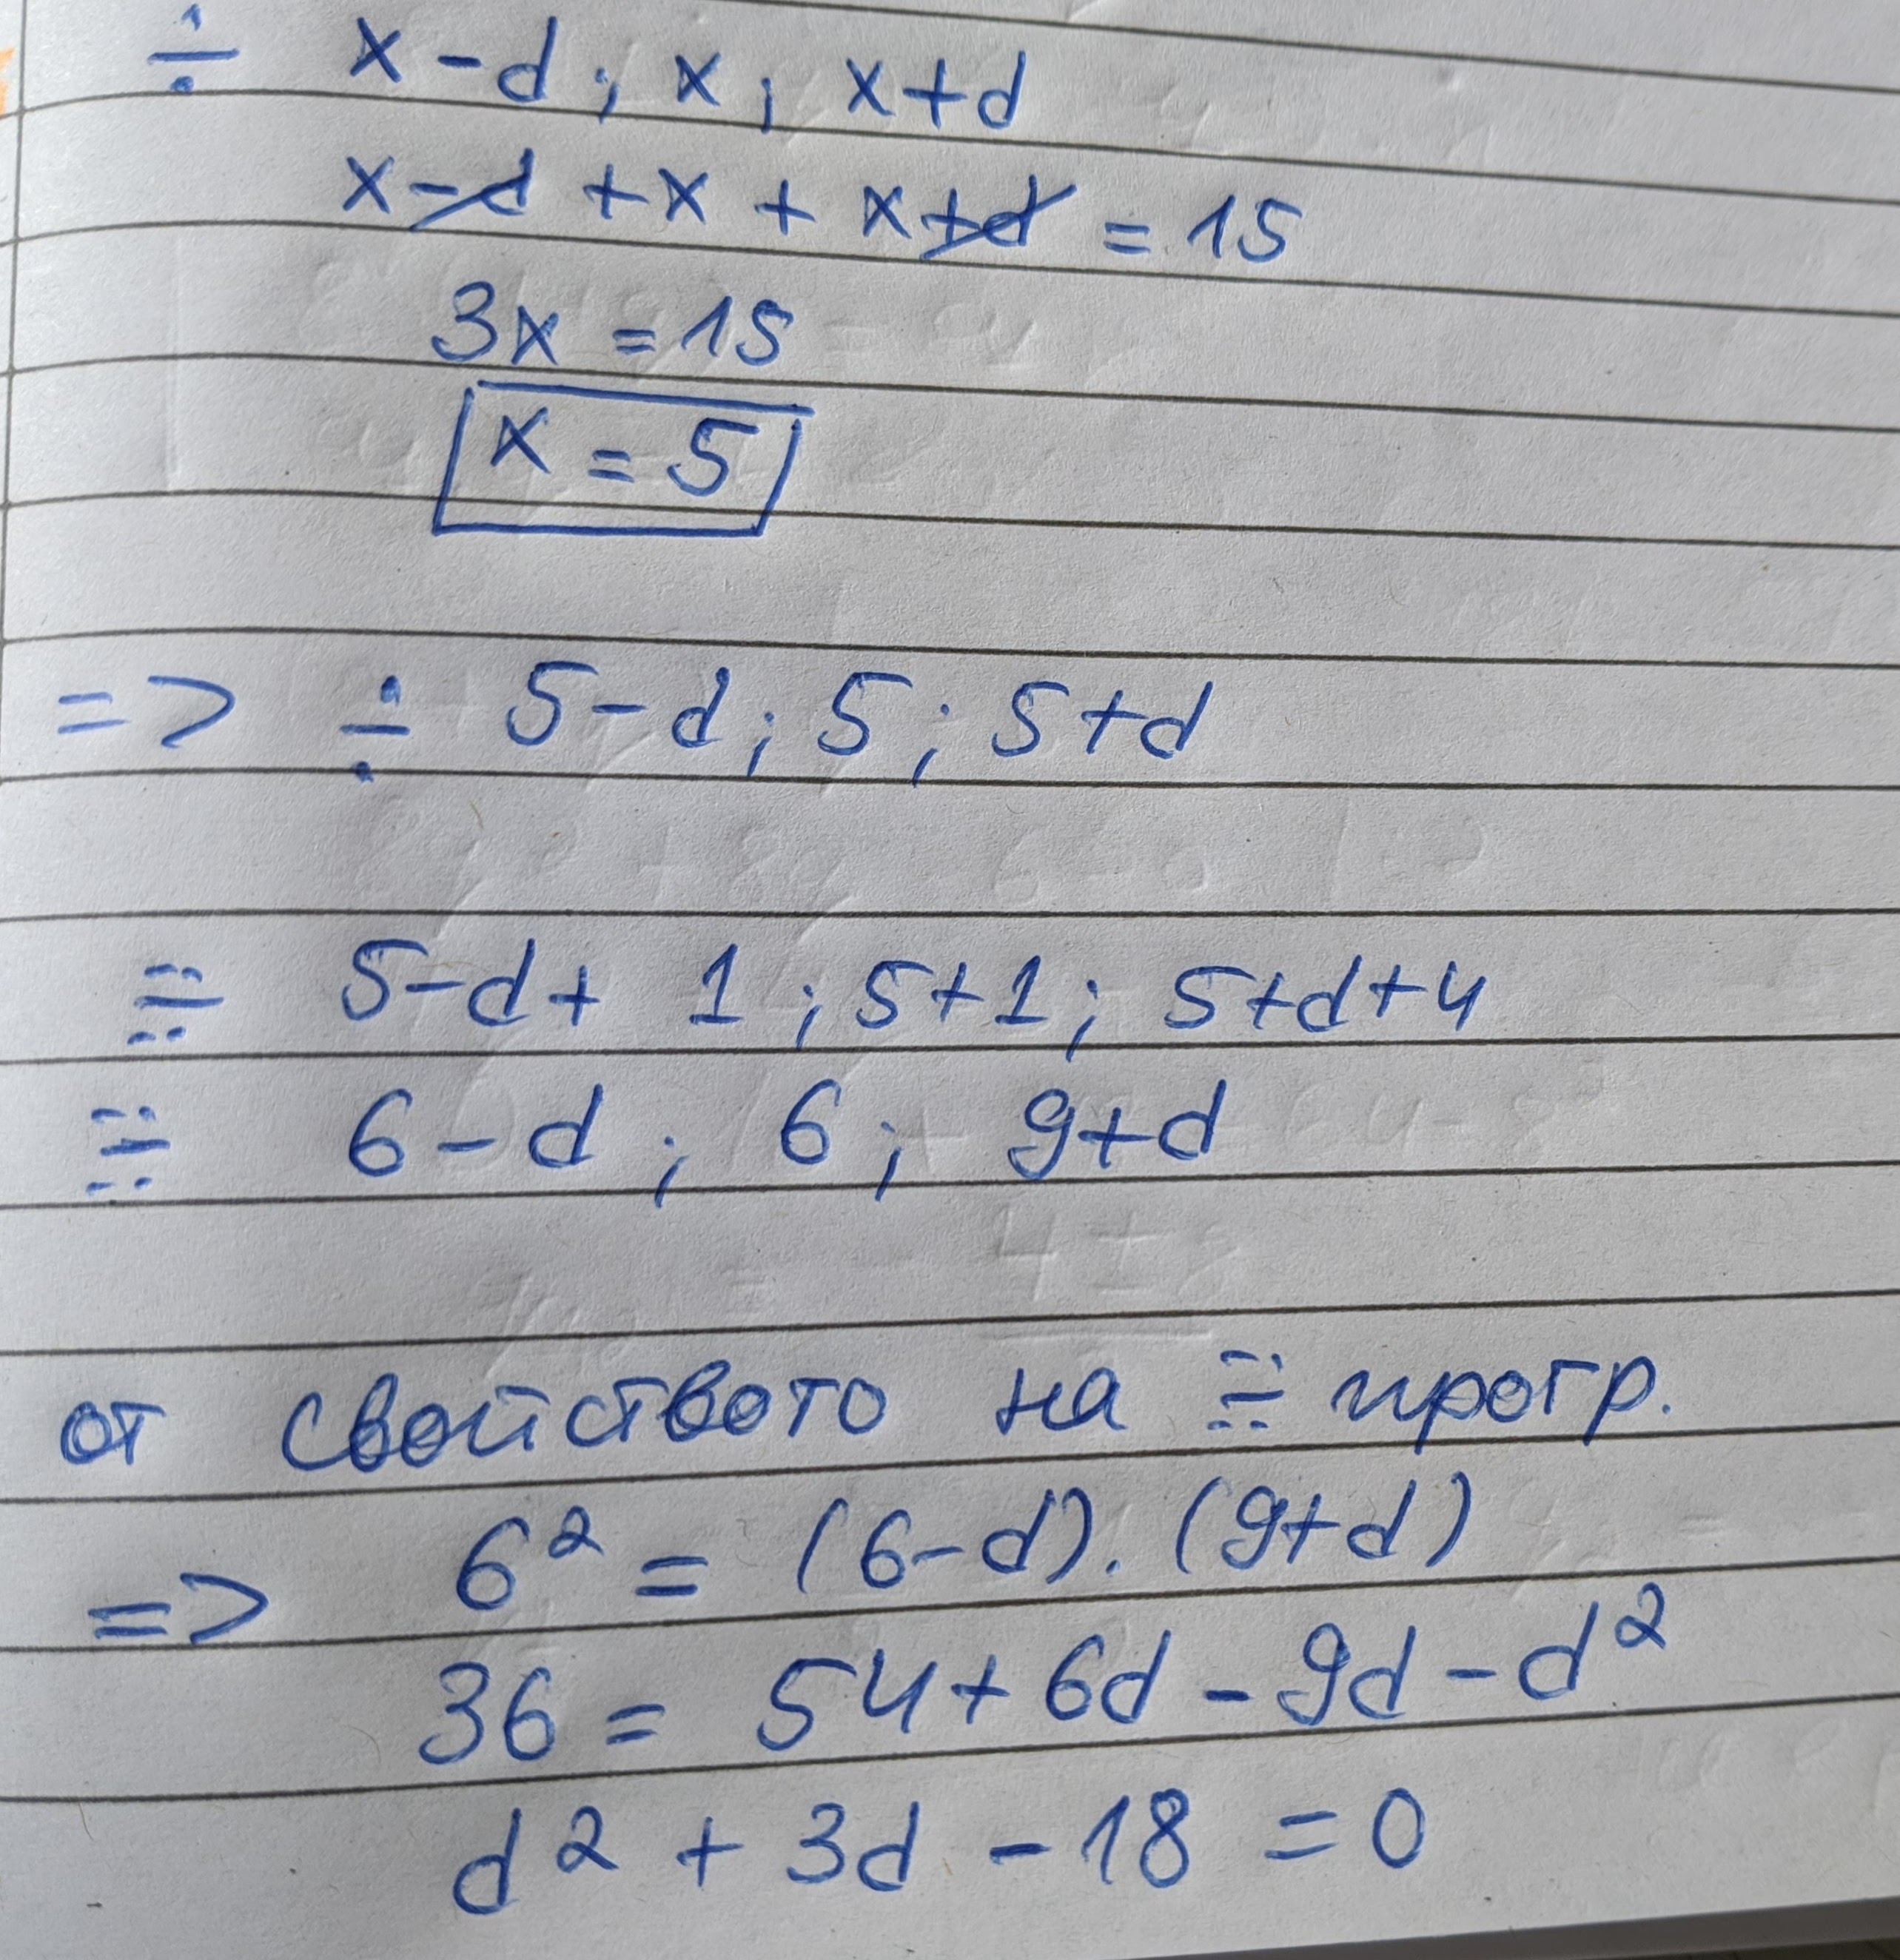 ÷ x-d; x; x+d
x-d + x + x+d = 15
3x = 15
x = 5
=> ÷ 5-d; 5; 5+d
∺ 5-d+ 1; 5+1; 5+d+4
∺ 6-d; 6; 9+d
от свойството на ∺ прогр.
=> 6² = (6-d).(9+d)
36 = 54+6d-9d-d²
d² + 3d - 18 = 0